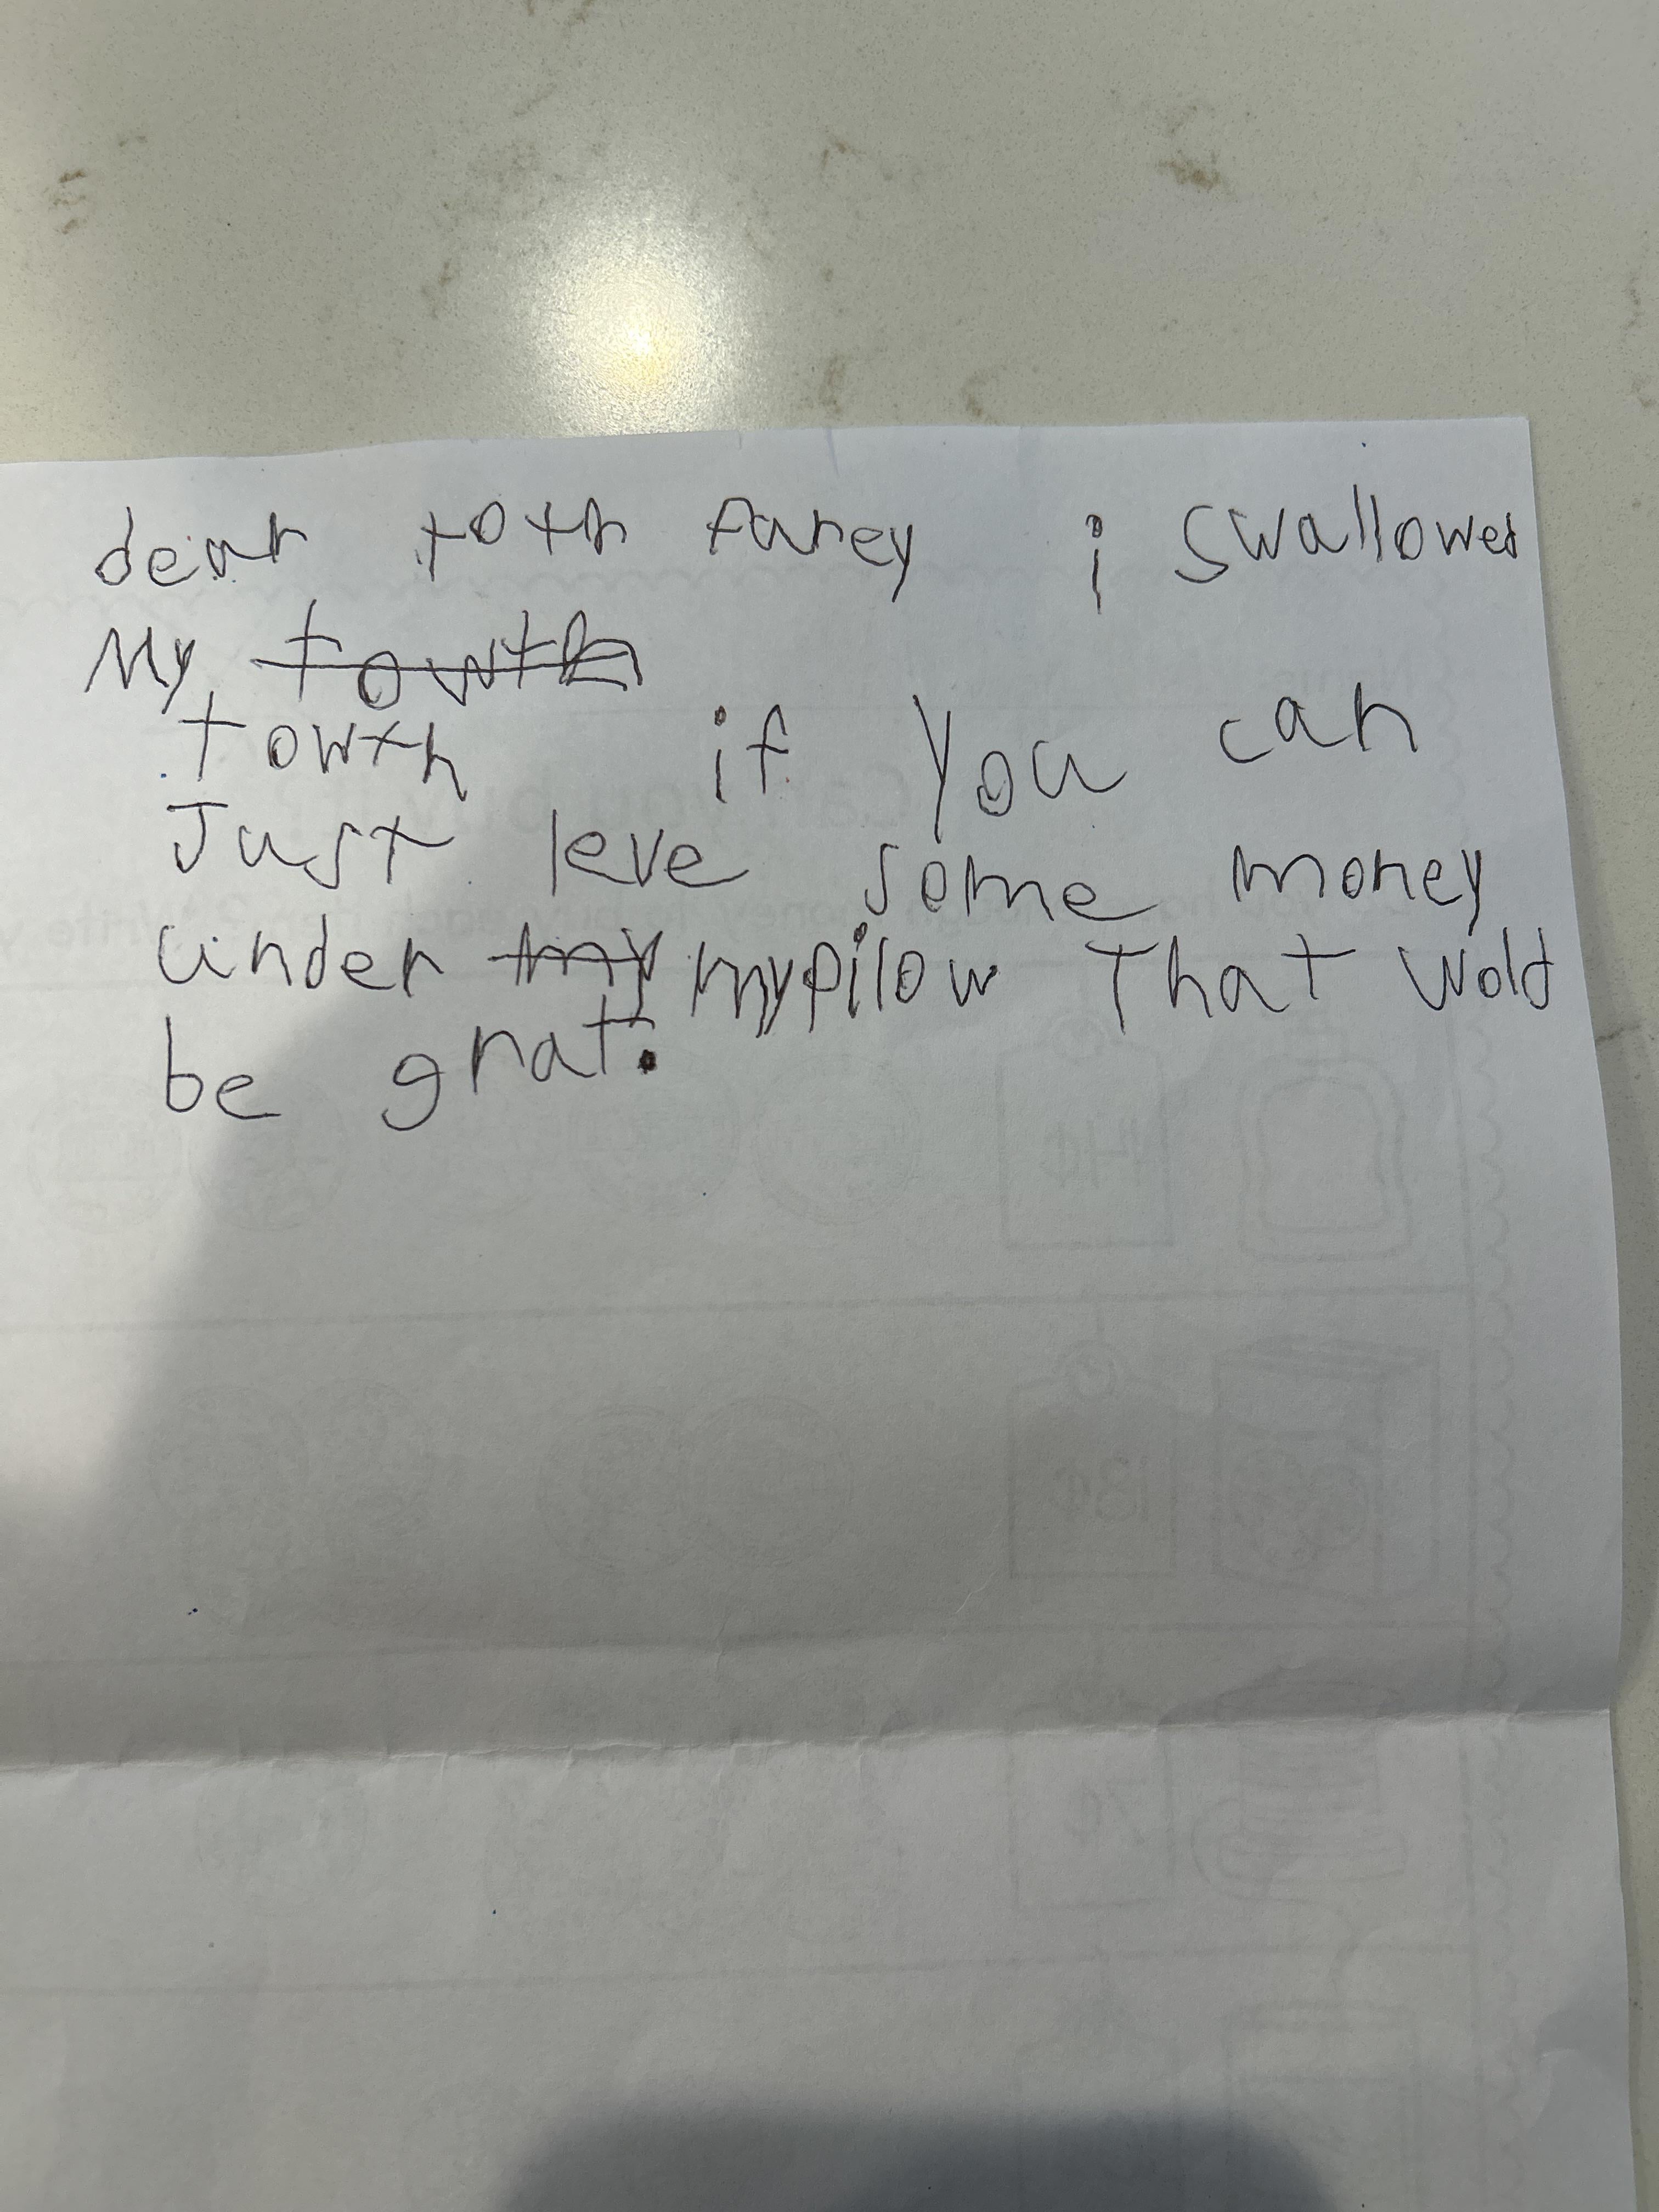 dear toth farey i swallowed
My towth
towth if you can
Just leve some money
under my my pilow That wold
be grat.
14¢
13¢
7¢